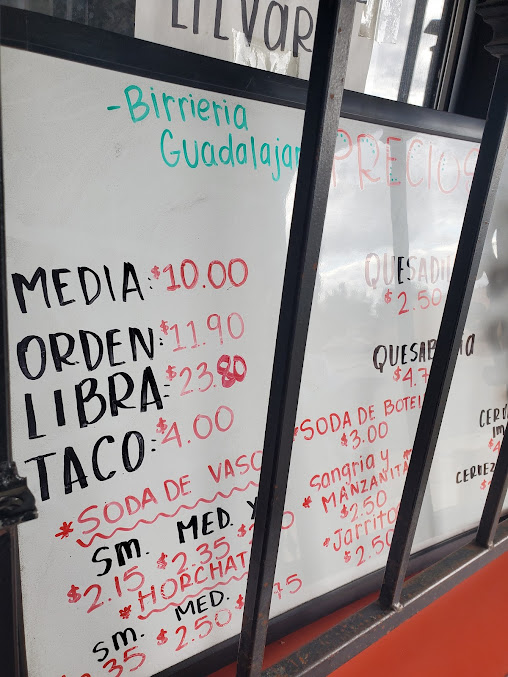 -Birrieria
Guadalajar
PRECIOS
MEDIA: $10.00
ORDEN: $11.90
LIBRA: $23.80
TACO: $4.00
*SODA DE VASO
SM. MED.
$2.15 $2.35
*HORCHAT
SM. MED.
$2.50
QUESADI
$2.50
$4.7
*SODA DE BOTE
$3.00
*Sangria y
MANZANITA
$2.50
*Jarrito
$2.50